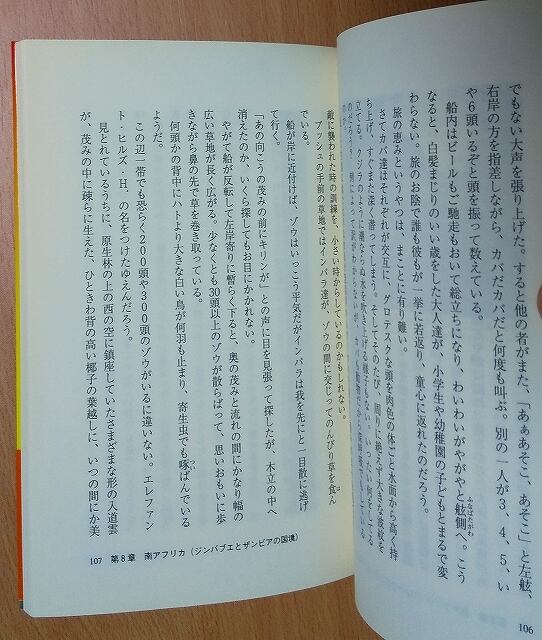 でもない大声を張り上げた。すると他の者がまた、「あぁあそこ、あそこ」と左舷、
右岸の方を指差しながら、カバだカバだと何度も叫ぶ。別の一人が3、4、5、い
や6頭いるぞと頭を振って数えている。
船内はビールもご馳走もおいて総立ちになり、わいわいがやがやと舷側へ。こう
ふなばたがわ
なると、白髪まじりのいい歳をした大人達が、小学生や幼稚園の子どもとまるで変
わらない。旅のお陰で誰も彼もが一挙に若返り、童心に返れたのだろう。
旅の恵みというやつは、まことに有り難い。
さてカバ達はそれぞれが交互に、グロテスクな頭を肉色の体ごと水面から高く持
ち上げ、すぐまた深く潜ってしまう。そしてそのたび、周りに絶えず大きな波紋を
立てる。クジラのように潮ならぬ水を吹き上げる様子もない。いったい何をしてる
106
敵に襲われた時の訓練を、小さい時からしているのかもしれない。
ブッシュの手前の草地ではインパラ達が、ゾウの間に交じってのんびり草を食ん
は
でいる。
船が岸に近付けば、ゾウはいっこう平気だがインパラは我を先にと一目散に逃げ
て行く。
「あの向こうの茂みの前にキリンが」との声に目を見張って探したが、木立の中へ
消えたのか、いくら探してもお目にかかれない。
やがて船が反転して左岸寄りに暫らく下ると、奥の茂みと流れの間にかなり幅の
広い草地が長く広がる。少なくとも30頭以上のゾウが散らばって、思いおもいに歩
きながら鼻の先で草を巻き取っている。
何頭かの背中にハトより大きな白い鳥が何羽も止まり、寄生虫でも啄ばんでいる
つい
ようだ。
この辺一帯でも恐らく200頭や300頭のゾウがいるに違いない。エレファン
ト・ヒルズ・H、の名をつけたゆえんだろう。
見とれているうちに、原生林の上の西の空に鎮座していたさまざまな形の入道雲
が、茂みの中に疎らに生えた、ひときわ背の高い椰子の葉越しに、いつの間にか美
107 第8章 南アフリカ（ジンバブエとザンビアの国境）